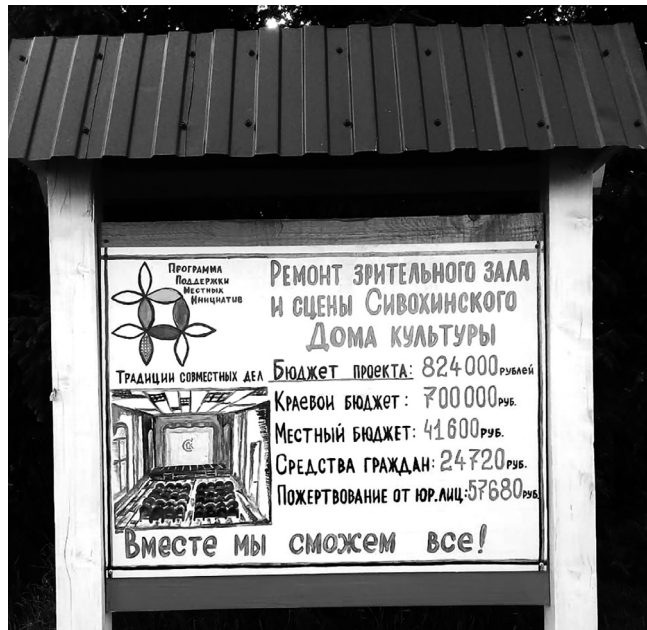 Программа
Поддержки
Местных
Инициатив
Традиции совместных дел
Ремонт зрительного зала
и сцены Сивохинского
Дома культуры
Бюджет проекта: 824000 рублей
Краевой бюджет: 700000 руб.
Местный бюджет: 41600 руб.
Средства граждан: 24720 руб.
Пожертвование от юр.лиц: 57680 руб.
Вместе мы сможем все!